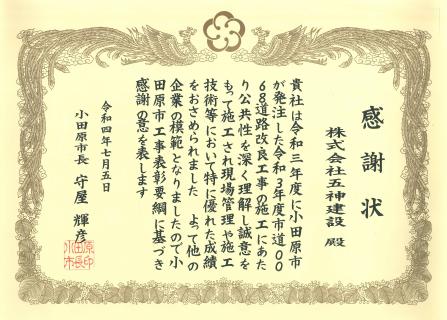 感謝状
株式会社五神建設 殿
貴社は令和三年度に小田原市
が発注した令和3年度市道00
68道路改良工事の施工にあた
り公共性を深く理解し誠意を
もって施工され現場管理や施工
技術等において特に優れた成績
をおさめられました よって他の
企業の模範となりましたので小
田原市工事表彰要綱に基づき
感謝の意を表します
令和四年七月五日
小田原市長 守屋輝彦
小田原
市長印